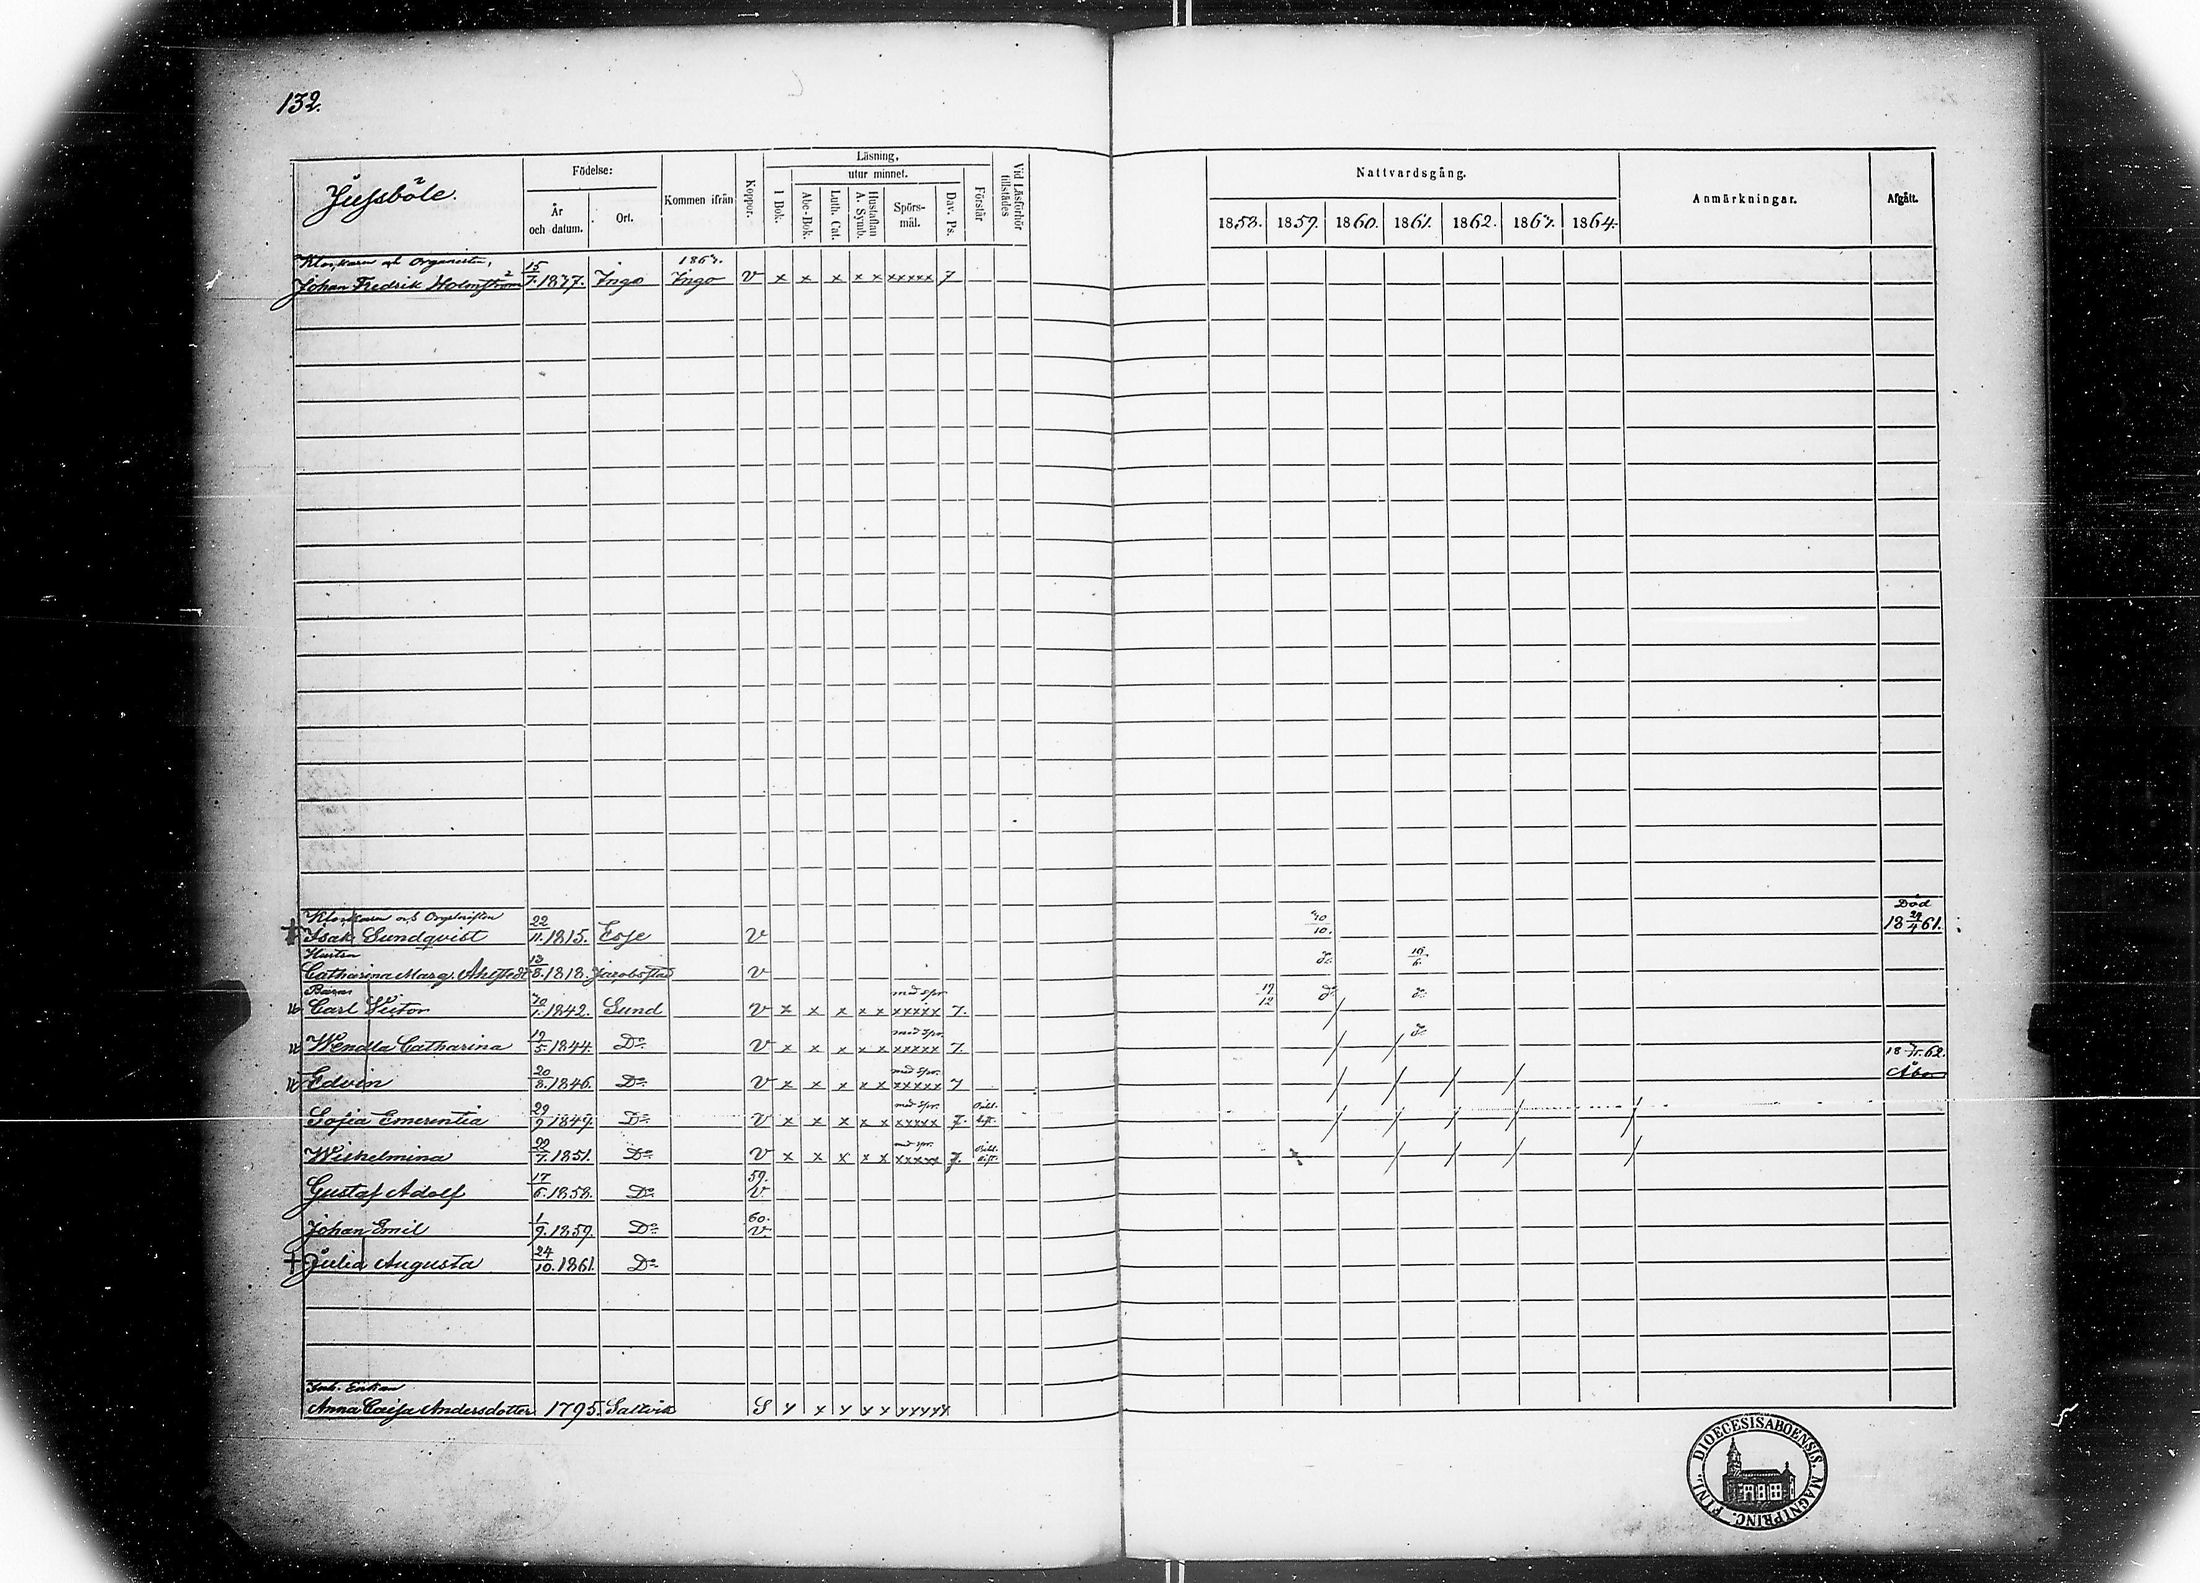 132.
Jussböle.
Födelse:
År och datum.
Ort.
Kommen ifrån
Koppor.
Läsning,
I Bok.
utur minnet.
Abc-Bok.
Luth. Cat.
Hustaflan A. Symb.
Spörs-mål.
Dav. Ps.
Förstår
Vid Läsförhör tillstädes
Nattvardsgång.
1858. 1859. 1860. 1861. 1862. 1863. 1864.
Anmärkningar.
Afgått.
Klockaren och Organisten,
Johan Fredrik Holmström 15/7.1837. Ingo 1863. Ingo V x x x x x xxxxx 7
Klockaren och Orgelnisten
† Isak Sundqvist 22/11.1815. Esse V 30/10. Död 18 29/4 61.
Hustrun
Catharina Marg. Ahlstedt 13/8.1818. Jacobstad V D:o 16/6.
Barn
Carl Victor 30/1.1842. Sund V x x x x x med spr. xxxxx 7. 19/12 D:o / D:o
Wendla Catharina 19/5.1844. D:o V x x x x x med spr. xxxxx 7. / / D:o
Edvin 20/8.1846. D:o V x x x x x med spr. xxxxx 7 / / / / 62. Åbo
Sofia Emerentia 29/9.1849. D:o V x x x x x med spr. xxxxx 7. / / / / /
Wilhelmina 1851. D:o V x x x x x med spr. xxxxx 7. / / / /
Gustaf Adolf 17/6.1858. D:o 59. V
Johan Emil 1/9.1859. D:o 60. V
† Julia Augusta 24/10.1861. D:o
Inh. Enkan
Anna Caisa Andersdotter 1795. Saltvik S x x x x x xxxxx
DIOECESIS ABOENSIS. MAGNI PRINC. FINL.